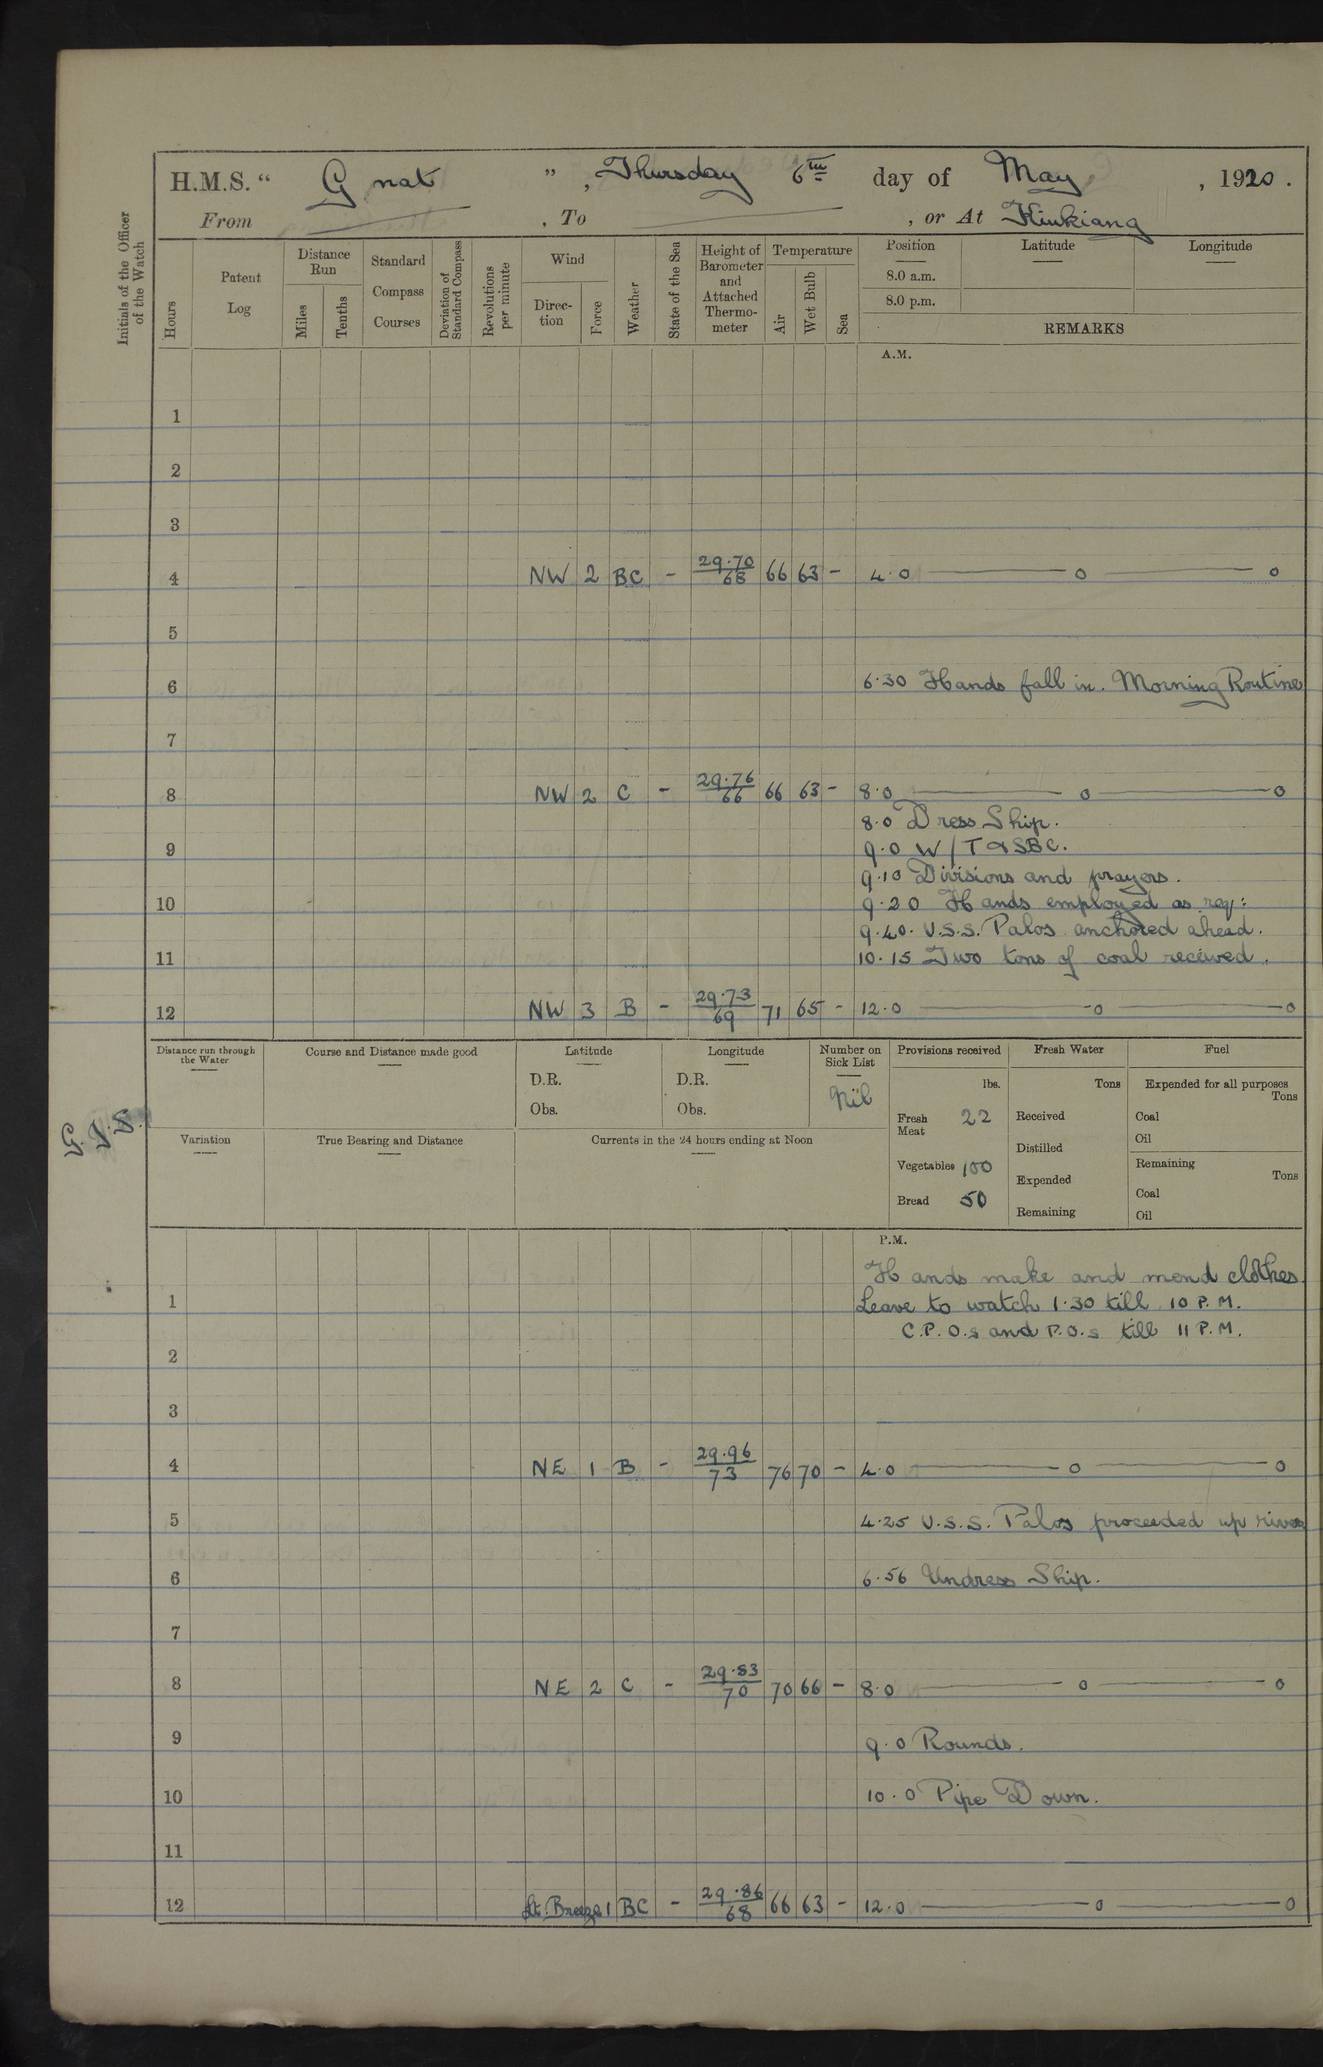 H.M.S. “ Gnat ” , Thursday 6th day of May , 1920 .
From , To , or At Kiukiang
Initials of the Officer of the Watch
Hours
Patent Log
Distance Run
Miles
Tenths
Standard Compass Courses
Deviation of Standard Compass
Revolutions per minute
Wind
Direction
Force
Weather
State of the Sea
Height of Barometer and Attached Thermometer
Temperature
Air
Wet Bulb
Sea
Position Latitude Longitude
8.0 a.m.
8.0 p.m.
REMARKS
A.M.
1
2
3
4 NW 2 BC - 29.70/68 66 63 - 4.0 —— o —— o
5
6 6.30 Hands fall in. Morning Routine
7
8 NW 2 C - 29.76/66 66 63 - 8.0 —— o —— o
8.0 Dress Ship.
9 9.0 W/T & SBC.
9.10 Divisions and prayers.
10 9.20 Hands employed as req:
9.40. U.S.S. Palos anchored ahead.
11 10.15 Two tons of coal received.
12 NW 3 B - 29.73/69 71 65 - 12.0 —— o —— o
Distance run through the Water
Course and Distance made good
Latitude
D.R.
Obs.
Longitude
D.R.
Obs.
Number on Sick List
Nil
Provisions received
lbs.
Fresh Meat 22
Vegetables 100
Bread 50
Fresh Water
Tons
Received
Distilled
Expended
Remaining
Fuel
Expended for all purposes
Tons
Coal
Oil
Remaining
Tons
Coal
Oil
Variation
True Bearing and Distance
Currents in the 24 hours ending at Noon
P.M.
Hands make and mend clothes.
1 Leave to watch 1.30 till 10 P.M.
C.P.O.s and P.O.s till 11 P.M.
2
3
4 NE 1 B - 29.96/73 76 70 - 4.0 —— o —— o
5 4.25 U.S.S. Palos proceeded up river
6 6.56 Undress Ship.
7
8 NE 2 C - 29.83/70 70 66 - 8.0 —— o —— o
9 9.0 Rounds.
10 10.0 Pipe Down.
11
12 Lt. Breeze 1 BC - 29.86/68 66 63 - 12.0 —— o —— o